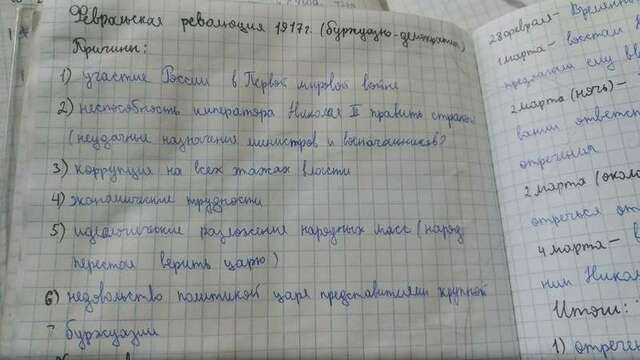 Февральская революция 1917г. (буржуазно-демократич)
Причины:
1) участие России в Первой мировой войне
2) неспособность императора Николая II править страной
(неудачные назначения министров и военачальников)
3) коррупция на всех этажах власти
4) экономические трудности
5) идеологическое разложение народных масс (народ
перестал верить царю)
6) недовольство политикой царя представителями крупной
буржуазии
28 февраля - Времен
1 марта - восстал
предложили ему вв
2 марта (ночь) -
вании ответст
отречения
2 марта (около
отречься от
4 марта - в
ним Никол
Итоги:
1) отречен